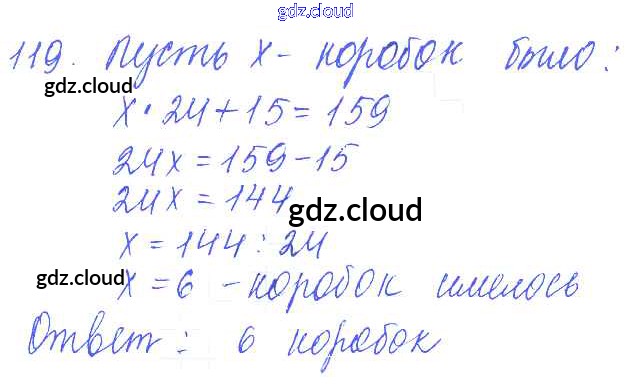 gdz.cloud
gdz.cloud
119. Пусть x - коробок было:
gdz.cloud
x · 24 + 15 = 159
24x = 159 - 15
24x = 144
gdz.cloud
x = 144 : 24
gdz.cloud
x = 6 - коробок имелось
Ответ: 6 коробок